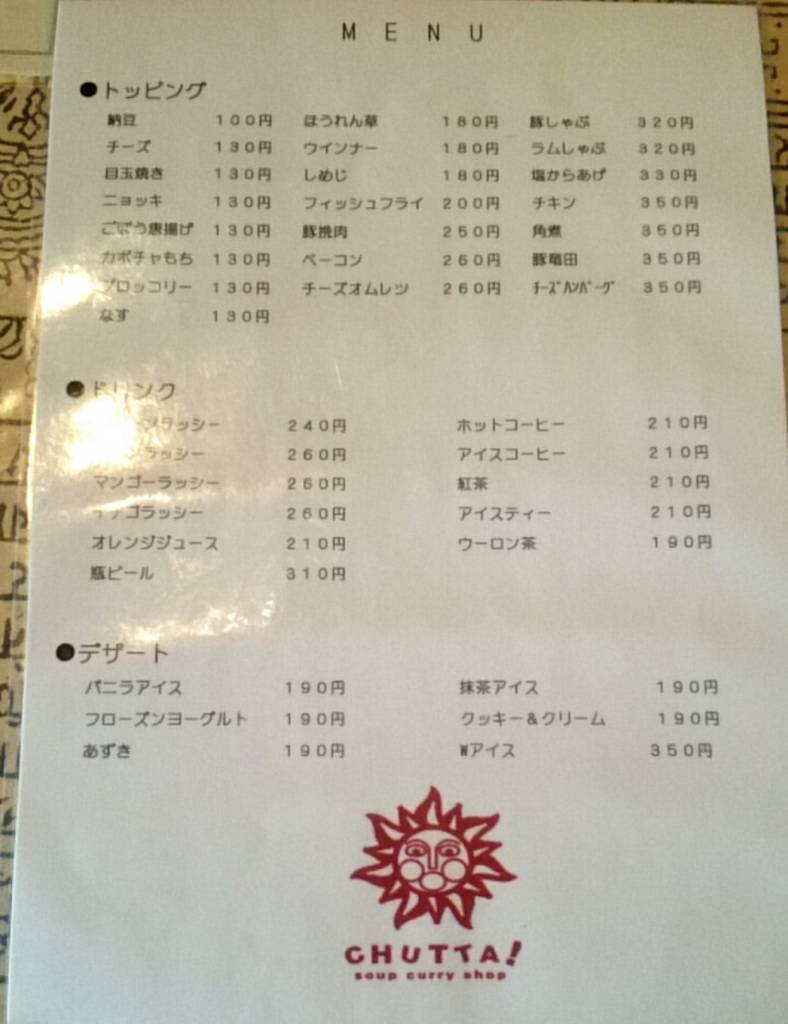 MENU
●トッピング
納豆 100円 ほうれん草 180円 豚しゃぶ 320円
チーズ 130円 ウインナー 180円 ラムしゃぶ 320円
目玉焼き 130円 しめじ 180円 塩からあげ 330円
ニョッキ 130円 フィッシュフライ 200円 チキン 350円
ごぼう唐揚げ 130円 豚挽肉 250円 角煮 350円
カボチャもち 130円 ベーコン 260円 豚竜田 350円
ブロッコリー 130円 チーズオムレツ 260円 ﾁｰｽﾞﾊﾝﾊﾞｰｸﾞ 350円
なす 130円
●ドリンク
ラッシー 240円 ホットコーヒー 210円
ラッシー 260円 アイスコーヒー 210円
マンゴーラッシー 260円 紅茶 210円
イチゴラッシー 260円 アイスティー 210円
オレンジジュース 210円 ウーロン茶 190円
瓶ビール 310円
●デザート
バニラアイス 190円 抹茶アイス 190円
フローズンヨーグルト 190円 クッキー＆クリーム 190円
あずき 190円 Wアイス 350円
CHUTTA!
soup curry shop